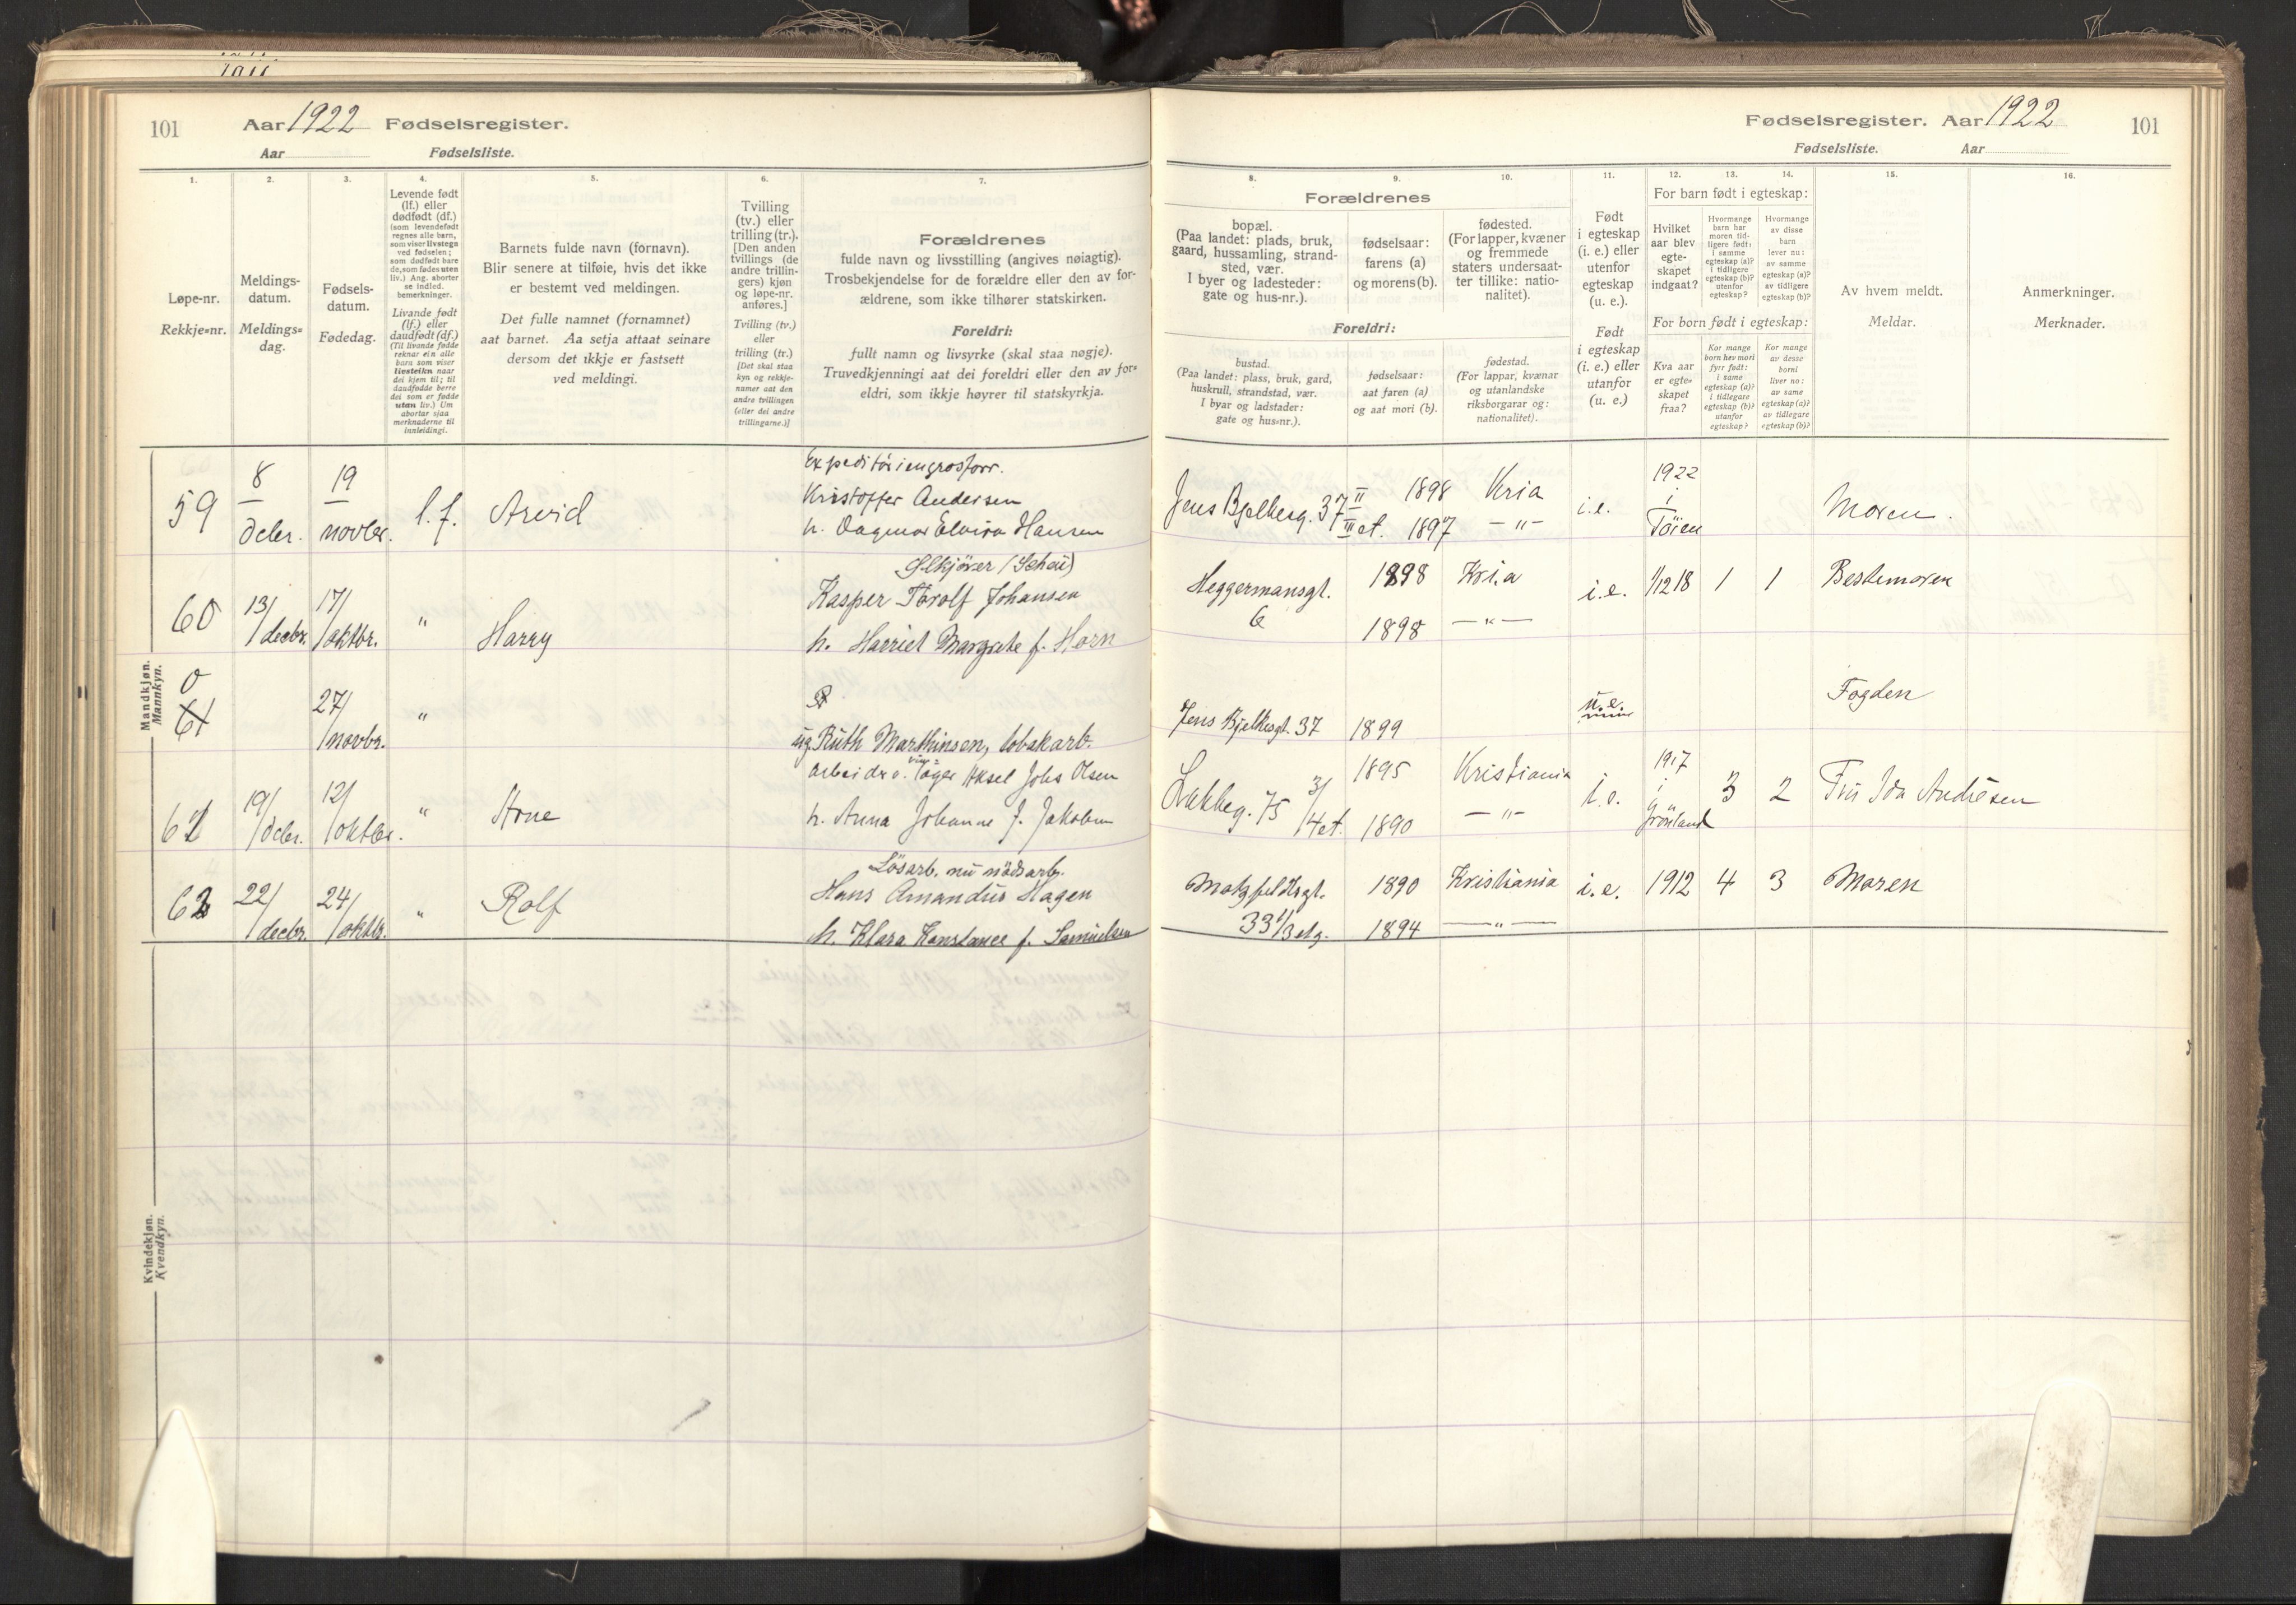 101 Aar 1922 Fødselsregister.
Aar Fødselsliste.
1. 2. 3. 4. 5. 6. 7.
Løpe-nr.
Rekkje-nr.
Meldings-
datum.
Meldings-
dag.
Fødsels-
datum.
Fødedag.
Levende født
(lf.) eller
dødfødt (df.)
(som levendefødt
regnes alle barn,
som viser livstegn
ved fødselen;
som dødfødt bare
de, som fødes uten
liv.) Ang. aborter
se indled.
bemerkninger.
Livande født
(lf.) eller
daudfødt (df.)
(Til livande fødde
reknar ein alle
barn som viser
livsteikn naar
dei kjem til; til
daudfødde berre
dei som er fødde
utan liv.) Um
abortar sjaa
merknaderne til
innleidingi.
Barnets fulde navn (fornavn).
Blir senere at tilføie, hvis det ikke
er bestemt ved meldingen.
Det fulle namnet (fornamnet)
aat barnet. Aa setja attaat seinare
dersom det ikkje er fastsett
ved meldingi.
Tvilling
(tv.) eller
trilling (tr.).
[Den anden
tvillings (de
andre trillin-
gers) kjøn
og løpe-nr.
anføres.]
Tvilling (tv.)
eller
trilling (tr.)
[Det skal staa
kyn og rekkje-
numer aat den
andre tvillingen
(eller dei andre
trillingarne.)]
Forældrenes
fulde navn og livsstilling (angives nøiagtig).
Trosbekjendelse for de forældre eller den av for-
ældrene, som ikke tilhører statskirken.
Foreldri:
fullt namn og livsyrke (skal staa nøgje).
Truvedkjenningi aat dei foreldri eller den av for-
eldri, som ikkje høyrer til statskyrkja.
Mandkjøn.
Mannkyn.
59 8 decbr. 19 novbr. l.f. Arvid
Expeditör i engrosforr.
Kristoffer Andersen
h. Dagmar Elvira Hansen
60 13/ decbr. 17/ oktbr. " Harry
Ølkjörer (Schou)
Kasper Torolf Johansen
h. Harriet Margrete f. Horn
0
61 27/ novbr. "
ug. Ruth Marthinsen, tobakarb.
62 19/ decbr. 12/ oktbr. " Arne
Aksel Johs Olsen
h. Anna Johanne f. Jakobsen
63 22/ decbr. 24/ oktbr. " Rolf
Lösarb. nu nödsarb.
Hans Amandus Hagen
h. Klara Konstance f. Samuelsen
Kvindekjøn.
Kvendkyn.
Fødselsregister. Aar 1922 101
Fødselsliste. Aar
8. 9. 10. 11. 12. 13. 14. 15. 16.
Forældrenes
bopæl.
(Paa landet: plads, bruk,
gaard, hussamling, strand-
sted, vær.
I byer og ladesteder:
gate og hus-nr.).
fødselsaar:
farens (a)
og morens (b).
fødested.
(For lapper, kvæner
og fremmede
staters undersaat-
ter tillike: natio-
nalitet).
Foreldri:
bustad.
(Paa landet: plass, bruk, gard,
huskrull, strandstad, vær.
I byar og ladstader:
gate og hus-nr.).
fødselsaar:
aat faren (a)
og aat mori (b).
fødestad.
(For lappar, kvænar
og utanlandske
riksborgarar og:
nationalitet).
Født
i egteskap
(i. e.) eller
utenfor
egteskap
(u. e.).
Født
i egteskap
(i. e.) eller
utanfor
(u. e.)
For barn født i egteskap:
Hvilket
aar blev
egte-
skapet
indgaat?
Hvormange
barn har
moren tid-
ligere født:
i samme
egteskap (a)?
i tidligere
egteskap (b)?
utenfor
egteskap?
Hvormange
av disse
barn
lever nu:
av samme
egteskap (a)?
av tidligere
egteskap (b)?
For born født i egteskap:
Kva aar
er egte-
skapet
fraa?
Kor mange
born hev mori
fyrr født:
i same
egteskap (a)?
i tidlegare
egteskap (b)?
utanfor
egteskap?
Kor mange
av desse
borni
liver no:
av same
egteskap (a)?
av tidlegare
egteskap (b)?
Av hvem meldt.
Meldar.
Anmerkninger.
Merknader.
Jens Bjelkesg. 37 II 1898 Kria i.e. 1922 i Töien Moren.
III et. 1897 — " —
Heggermansgt. 1898 Kria i.e. 1/12 18 1 1 Bestemoren
6 1898 — " —
Jens Bjelkesgt. 37 1899 u.e. Fogden
Lakkeg. 75 3/ 4 et. 1895 Kristiania i.e. 1917 i Grönland 3 2 Fru Ida Andresen
1890 — " —
Motzfeldtsgt. 1890 Kristiania i.e. 1912 4 3 Moren
33 1/3 etg. 1894 — " —